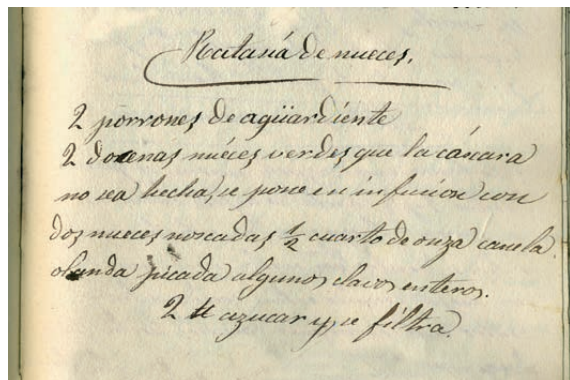 Ratasiá de nueces.
2 porrones de agüardiente
2 docenas nuéces verdes que la cáscara
no sea hecha, se pone en infucion con
dos nueces noscadas ½ cuarto de onza canela
olanda picada algunos clavos enteros.
2 tt azucar y se filtra.